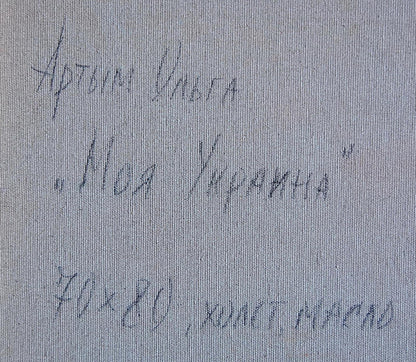 Артым Ольга
„Моя Украина"
70×80, холст, масло